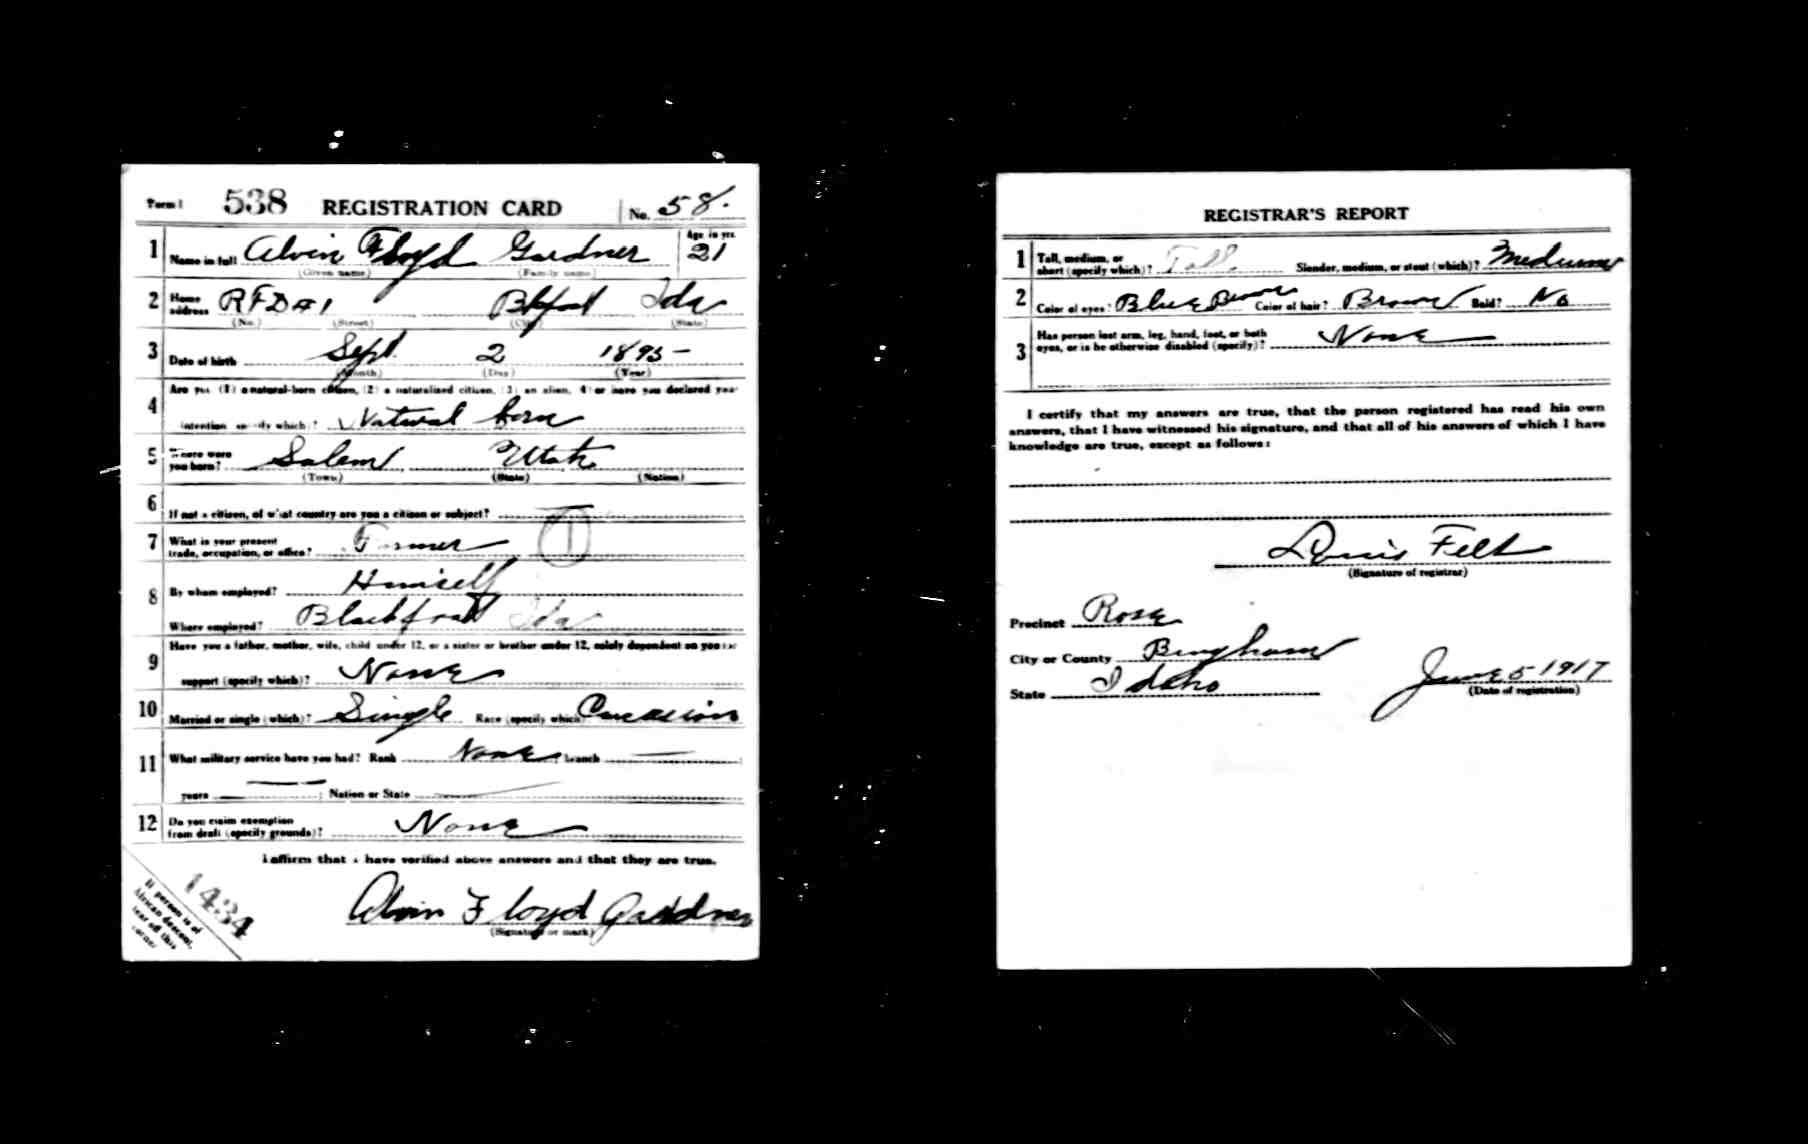 Form 1 538 REGISTRATION CARD No. 58.
1 Name in full Alvin Floyd Gardner Age in yrs. 21
(Given name) (Family name)
2 Home address RFD #1 Blkfoot Ida
(No.) (Street) (City) (State)
3 Date of birth Sept. 2 1895 –
(Month) (Day) (Year)
4 Are you (1) a natural-born citizen, (2) a naturalized citizen, (3) an alien, (4) or have you declared your
intention specify which)? Natural born
5 Where were you born? Salem Utah
(Town) (State) (Nation)
6 If not a citizen, of what country are you a citizen or subject?
7 What is your present
trade, occupation, or office? Farmer 1
8 By whom employed? Himself
Where employed? Blackfoot Ida
9 Have you a father, mother, wife, child under 12, or a sister or brother under 12, solely dependent on you for
support (specify which)? None
10 Married or single (which)? Single Race (specify which) Caucasion
11 What military service have you had? Rank None branch
years ; Nation or State
12 Do you claim exemption
from draft (specify grounds)? None
I affirm that I have verified above answers and that they are true.
Alvin Floyd Gardner
(Signature or mark)
If person is of
African descent,
tear off this
corner
1434
REGISTRAR'S REPORT
1 Tall, medium, or
short (specify which)? Tall Slender, medium, or stout (which)? Medium
2 Color of eyes? Blue Brown Color of hair? Brown Bald? No
3 Has person lost arm, leg, hand, foot, or both
eyes, or is he otherwise disabled (specify)? None
I certify that my answers are true, that the person registered has read his own
answers, that I have witnessed his signature, and that all of his answers of which I have
knowledge are true, except as follows:
Louis Felt
(Signature of registrar)
Precinct Rose
City or County Bingham
State Idaho June 5 1917
(Date of registration)